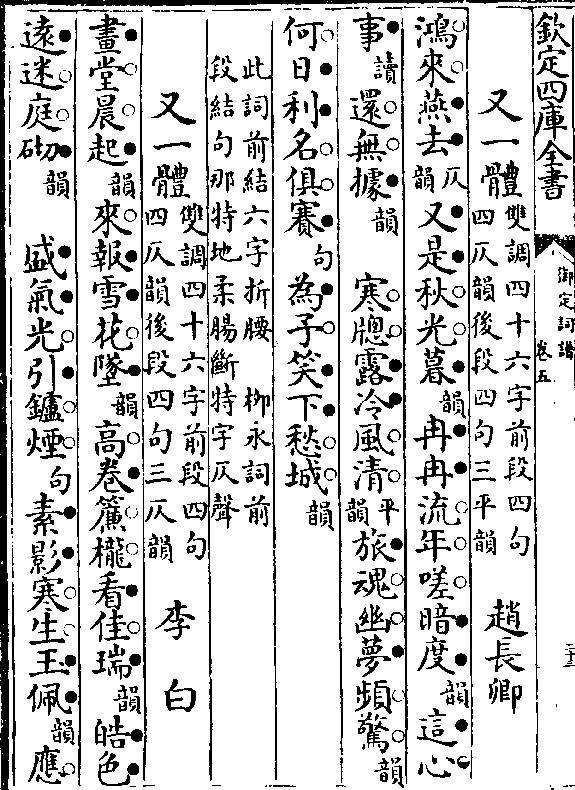 欽定四庫全書 御定詞譜 卷五
又一體 雙調四十六字前段四句四仄韻後段四句三平韻 趙長卿
鴻來燕去仄韻又是秋光暮韻冉冉流年嗟暗度韻這心
事讀還無據韻 寒牕露冷風清平韻旅魂幽夢頻驚韻
何日利名俱賽句為子笑下愁城韻
此詞前結六字折腰 柳永詞前
段結句那特地柔腸斷特字仄聲
又一體 雙調四十六字前段四句四仄韻後段四句三仄韻 李白
畫堂晨起韻來報雪花墜韻高卷簾櫳看佳瑞韻皓色
遠迷庭砌韻 盛氣光引鑪煙句素影寒生玉佩韻應